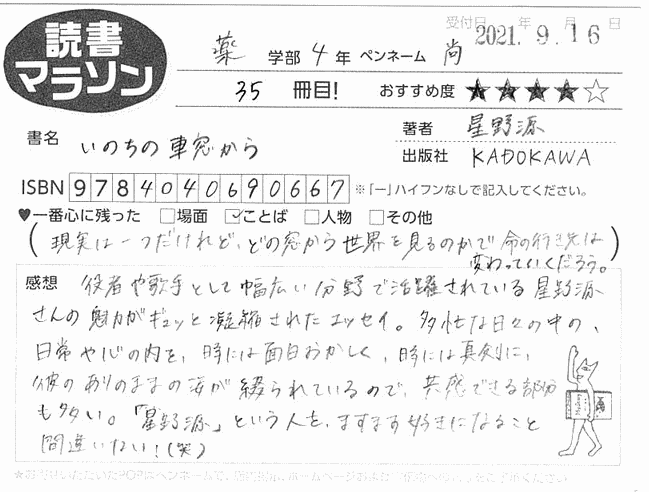 読書
マラソン
受付日 年 月 日
2021.9.16
薬 学部 4 年 ペンネーム 尚
35 冊目! おすすめ度 ★★★★☆
書名 いのちの車窓から
著者 星野源
出版社 KADOKAWA
ISBN 9784040690667 ※「ー」ハイフンなしで記入してください。
♥一番心に残った □場面 ☑ことば □人物 □その他
(現実は一つだけれど、どの窓から世界を見るのかで命の行き先は
変わっていくだろう。)
感想 役者や歌手として幅広い分野で活躍されている星野源
さんの魅力がギュッと凝縮されたエッセイ。多忙な日々の中の、
日常や心の内を、時には面白おかしく、時には真剣に、
彼のありのままの姿が綴られているので、共感できる部分
も多い。「星野源」という人を、ますます好きになること
間違いない!(笑)